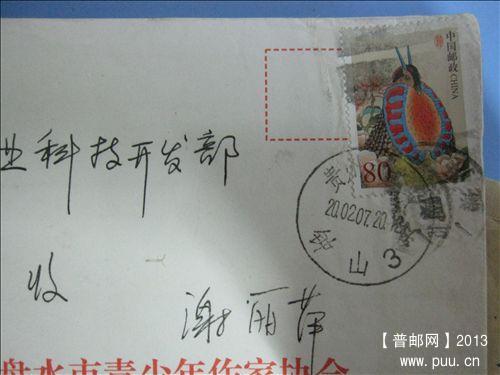 中国邮政 CHINA
80
业科技开发部
20.02.07.20
钟山3
收
谢丽萍
盘水市青少年作家协会
【普邮网】2013
www.puu.cn